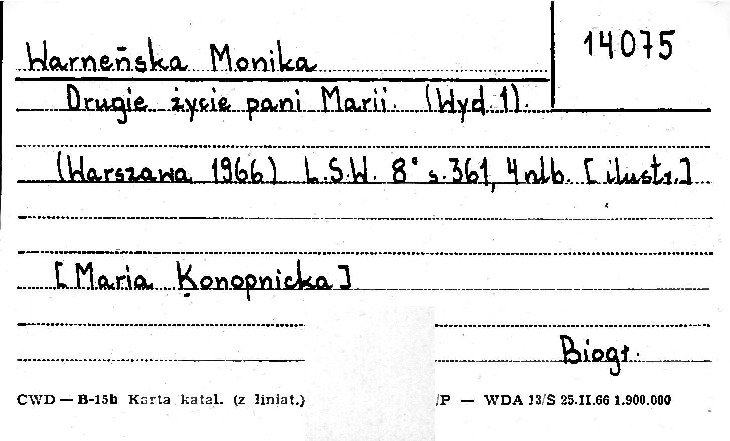 14075
Warneńska Monika
Drugie życie pani Marii. (Wyd. 1).
(Warszawa 1966) L.S.W. 8° s. 361, 4 nlb. [ilustr.]
[Maria Konopnicka]
Biogr.
CWD — B-15b Karta katal. (z liniat.) /P — WDA 13/S 25.II.66 1.900.000